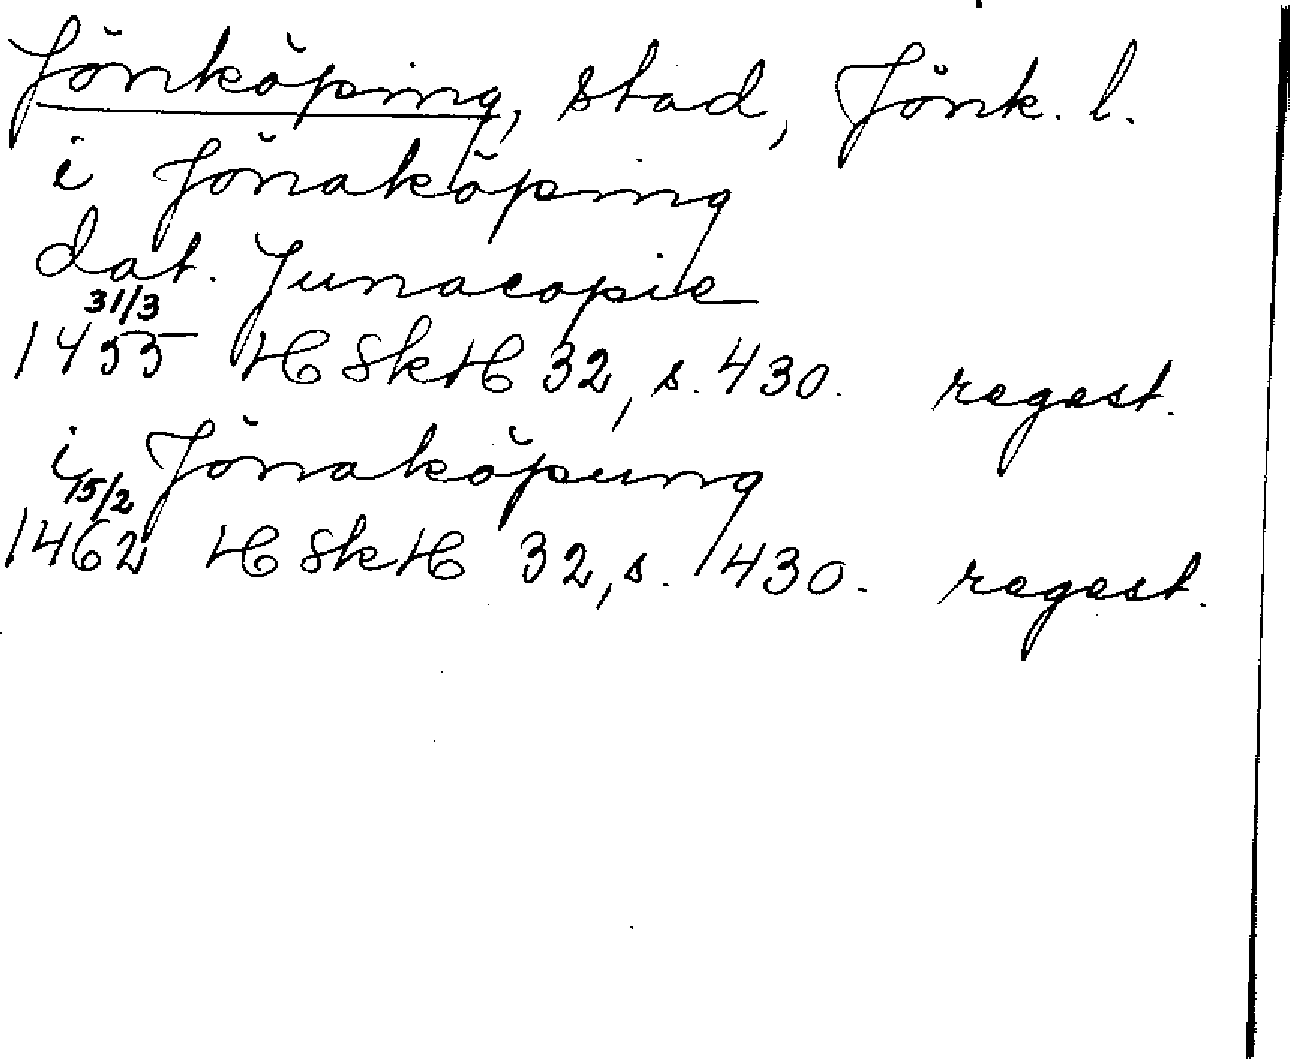 Jönköping, stad, Jönk. l.
i Jönaköping
dat. Junacopie
31/3
1455 HSkH 32, s. 430. regest.
i Jönaköpung
15/2
1462 HSkH 32, s. 430. regest.